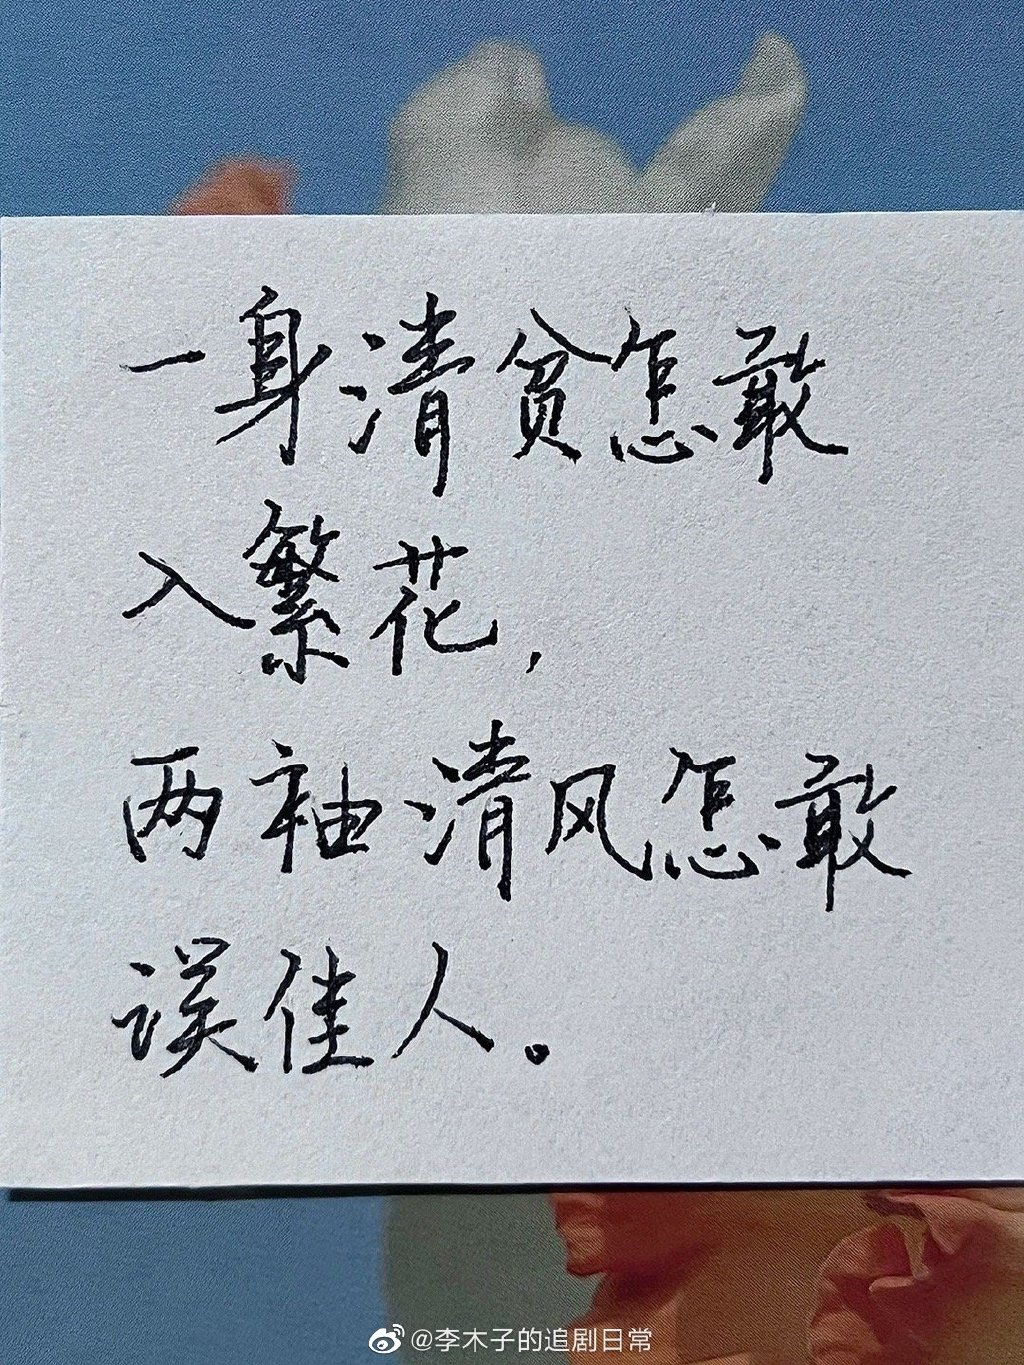 一身清贫怎敢
入繁花，
两袖清风怎敢
误佳人。
@李木子的追剧日常